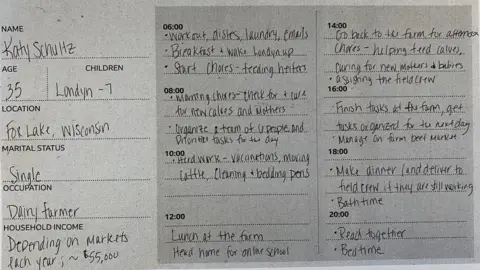 NAME
Katy Schultz
AGE
CHILDREN
35
Londyn - 7
LOCATION
Fox Lake, Wisconsin
MARITAL STATUS
Single
OCCUPATION
Dairy farmer
HOUSEHOLD INCOME
Depending on markets
each year; ~ $55,000
06:00
• Workout, dishes, laundry, emails
• Breakfast & wake Londyn up
• Start chores - feeding heifers
08:00
• Morning chores - check for & care
for new calves and mothers
• Organize a team of 6 people and
Prioritize tasks for the day
10:00
• Herd work - vaccinations, moving
cattle, cleaning & bedding pens
12:00
Lunch at the farm
Head home for online school
14:00
• Go back to the farm for afternoon
chores - helping feed calves,
caring for new mothers & babies
• assigning the field crew
16:00
Finish tasks at the farm, get
tasks organized for the next day
• Manage on farm beef market
18:00
• Make dinner (and deliver to
field crew if they are still working
• Bath time
20:00
• Read together
• Bedtime